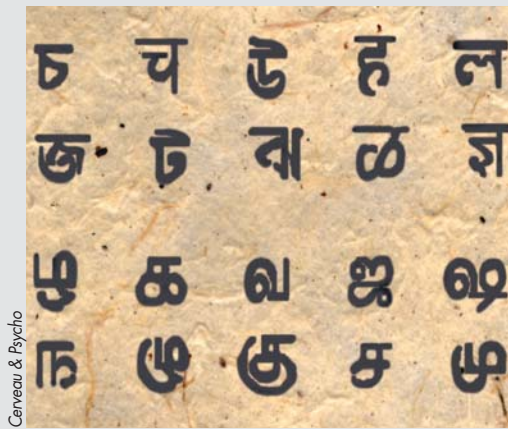 চ च উ ह ल
জ ট झ ळ ज्ञ
ழ க வ ஜ ஷ
ந ழு கு ச மு
Cerveau & Psycho